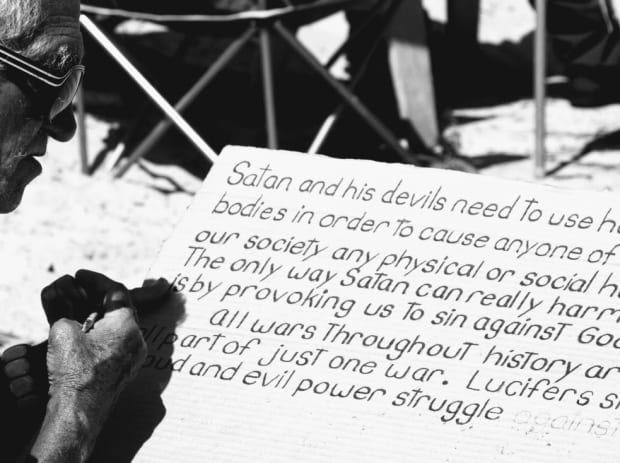 Satan and his devils need to use
bodies in order to cause anyone of
our society any physical or social
The only way Satan can really harm
is by provoking us to sin against God
all wars throughout history
part of just one war. Lucifers
and evil power struggle against